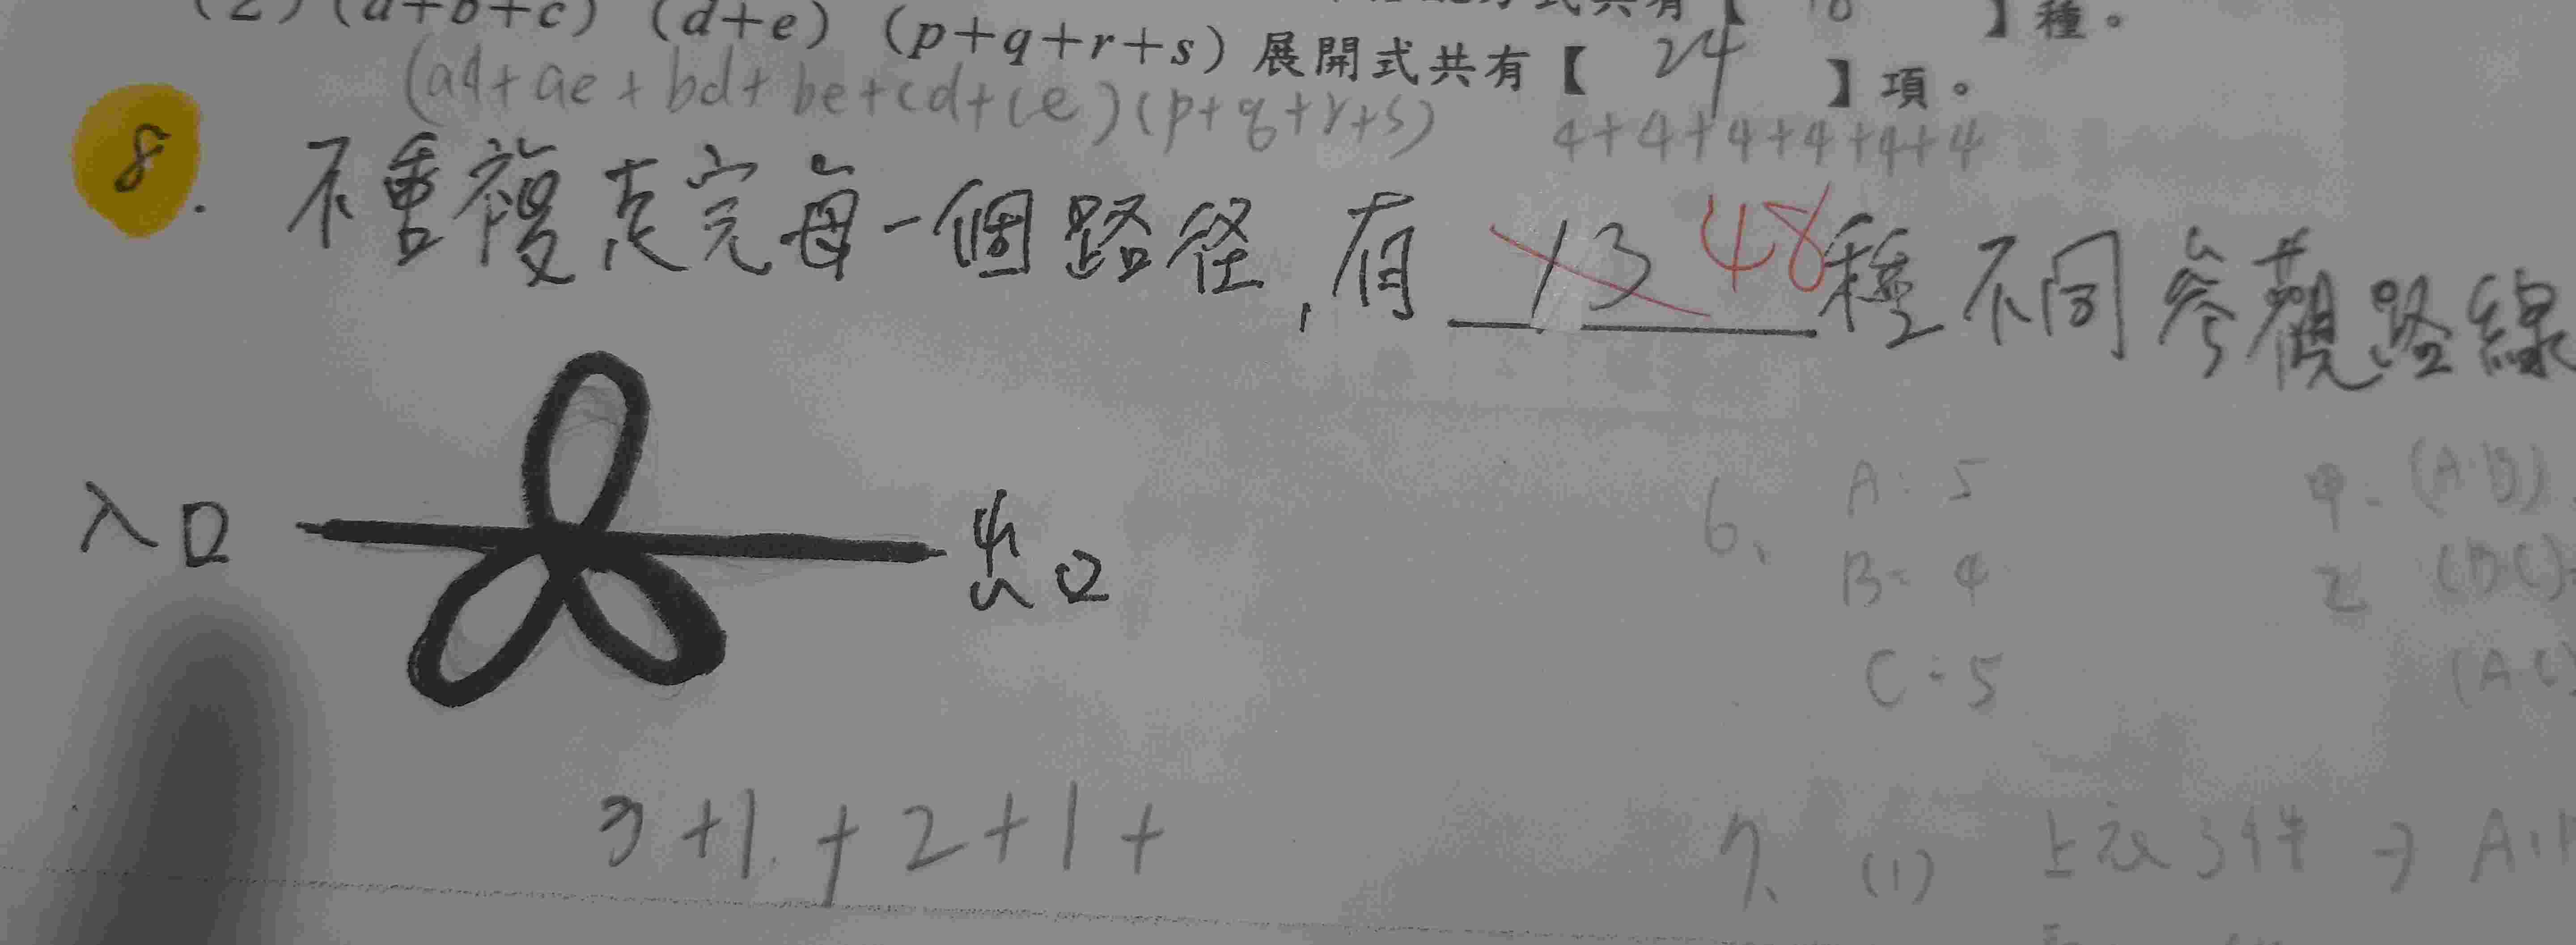 (2)(a+b+c)(d+e)(p+q+r+s)展開式共有【 24 】項。
種。
(ad+ae+bd+be+cd+ce)(p+q+r+s) 4+4+4+4+4+4
8. 不重複走完每一個路徑,有 13 48 種不同參觀路線
入口 出口
6、 A: 5
B: 4
C: 5
(A.B)
3+1+2+1+
7、(1)